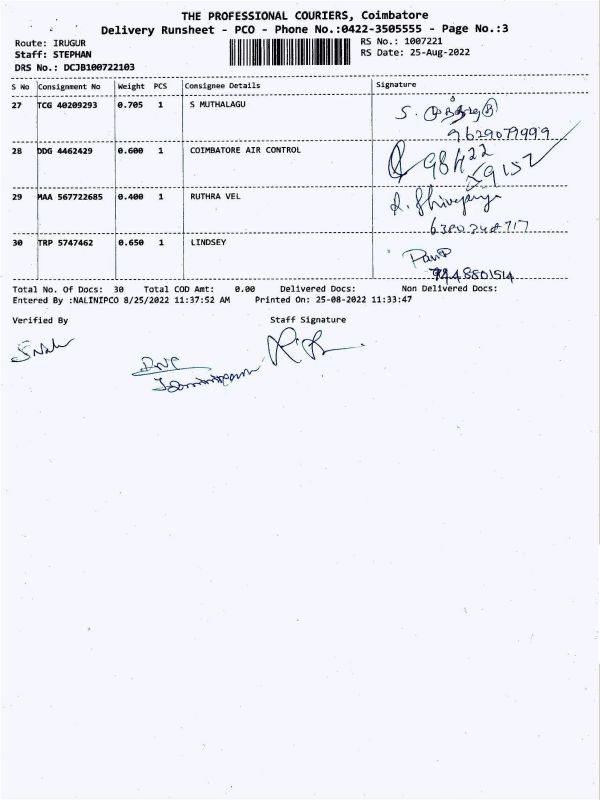 THE PROFESSIONAL COURIERS, Coimbatore
Delivery Runsheet - PCO - Phone No.:0422-3505555 - Page No.:3
Route: IRUGUR RS No.: 1007221
Staff: STEPHAN RS Date: 25-Aug-2022
DRS No.: DCJB100722103
S No Consignment No Weight PCS Consignee Details Signature
27 TCG 40209293 0.705 1 S MUTHALAGU S.
9629079999
28 DDG 4462429 0.600 1 COIMBATORE AIR CONTROL 98422
59157
29 MAA 567722685 0.400 1 RUTHRA VEL
30 TRP 5747462 0.650 1 LINDSEY
Total No. Of Docs: 30 Total COD Amt: 0.00 Delivered Docs: Non Delivered Docs:
Entered By :NALINIPCO 8/25/2022 11:37:52 AM Printed On: 25-08-2022 11:33:47
Verified By Staff Signature